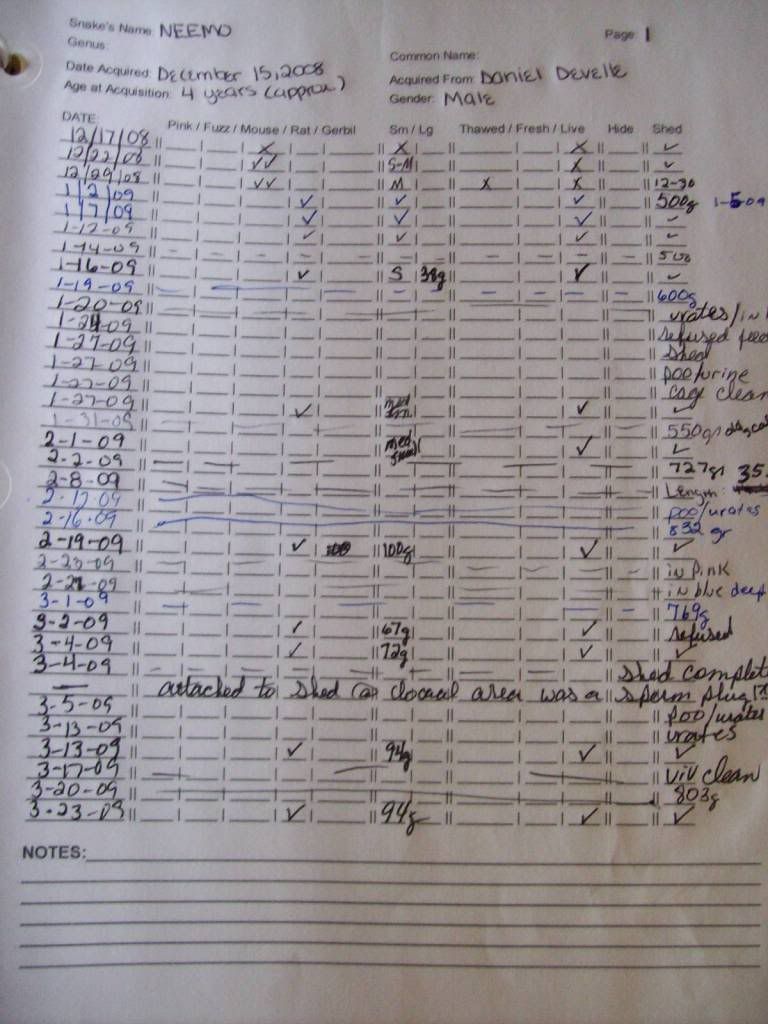 Snake's Name: NEEMO Page: 1
Genus: Common Name:
Date Acquired: December 15, 2008 Acquired From: Daniel Develle
Age at Acquisition: 4 years (approx) Gender: Male
DATE: Pink / Fuzz / Mouse / Rat / Gerbil Sm / Lg Thawed / Fresh / Live Hide Shed
12/17/08 X X X ✓
12/22/08 ✓✓ S-M X ✓
12/29/08 ✓✓ M X X 12-30
1/2/09 ✓ ✓ ✓ 500g 1-5-09
1/7/09 ✓ ✓ ✓ ✓
1-12-09 ✓ ✓ ✓ ✓
1-14-09 - - - - - - - -
1-16-09 ✓ S 38g ✓ ✓
1-19-09 600g
1-20-09 urates/in
1-24-09 refused
1-27-09 shed
1-27-09 poo/urine
1-27-09 cage clean
1-27-09 ✓ med sm. ✓ ✓
1-31-09 550g
2-1-09 ✓ med small ✓ ✓
2-2-09 727g 35.
2-8-09 Length:
2-12-09 poo/urates
2-16-09 832 gr
2-19-09 ✓ 100g ✓ ✓
2-23-09 in pink
2-2-09 in blue deep
3-1-09 769g
3-2-09 ✓ 67g ✓ refused
3-4-09 ✓ 72g ✓ ✓
3-4-09 shed complet
— attached to shed @ cloacal area was a sperm plug
3-5-09 poo/urates
3-13-09 urates
3-13-09 ✓ 94g ✓ ✓
3-17-09 viv clean
3-20-09 803g
3-23-09 ✓ 94g ✓ ✓
NOTES: